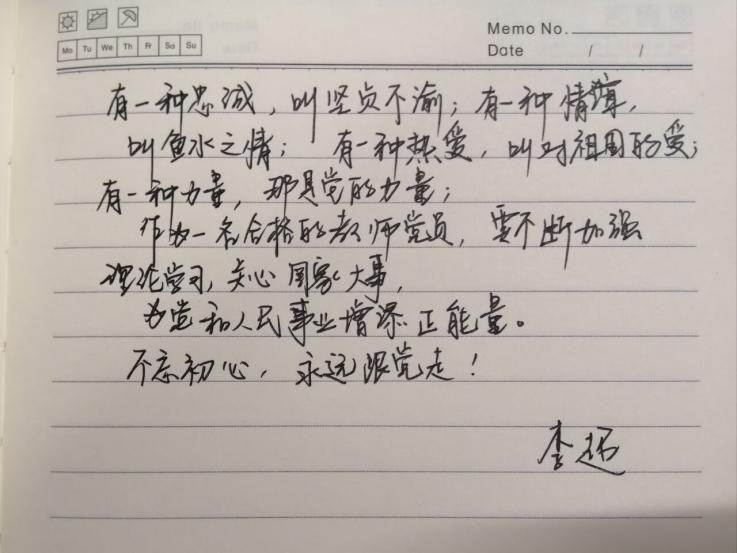 Memo No.
Mo Tu We Th Fr Sa Su
Date / /
有一种忠诚，叫坚贞不渝；有一种情，
叫鱼水之情；有一种热爱，叫对祖国的爱；
有一种力量，那是党的力量；
作为一名合格的教师党员，要不断加强
理论学习，关心国家大事，
为党和人民事业增添正能量。
不忘初心，永远跟党走！
李超